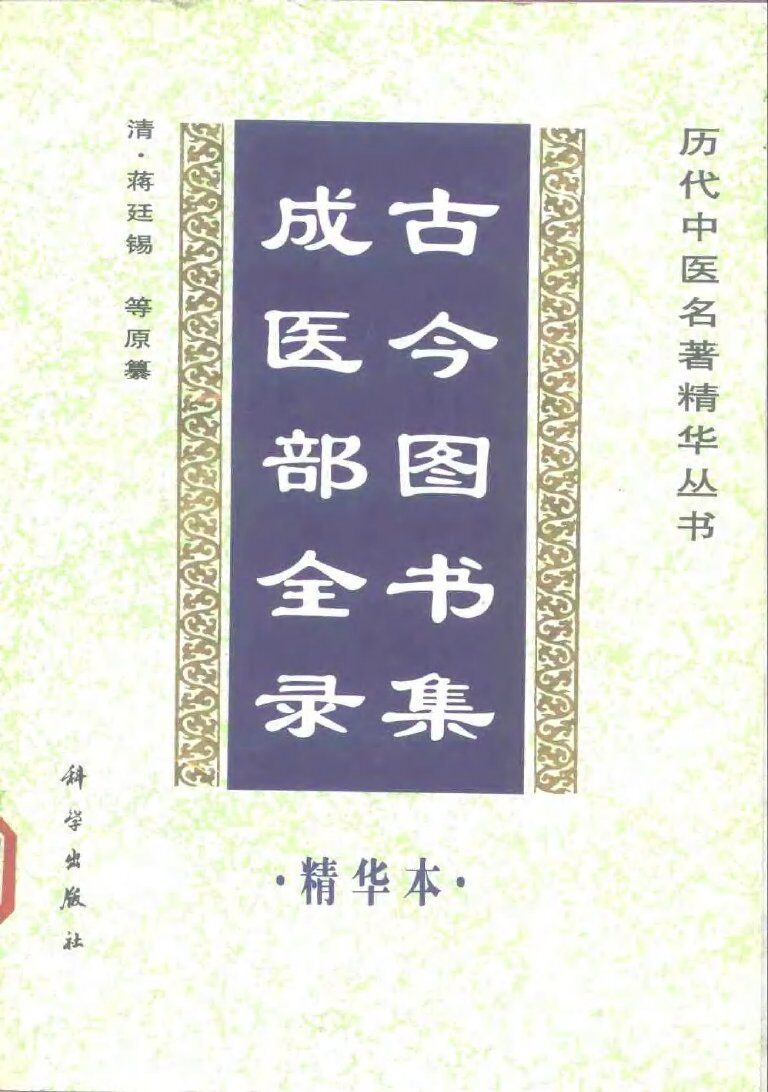 历代中医名著精华丛书
古今图书集
成医部全录
清·蒋廷锡 等原纂
·精华本·
科学出版社